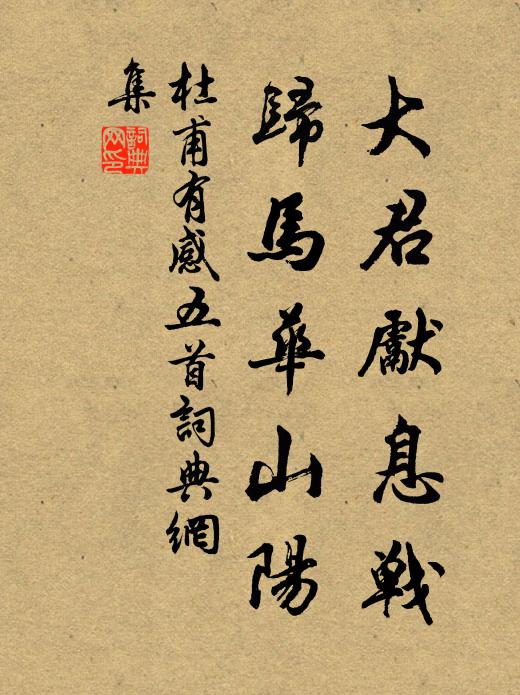 大君獻息戰
歸馬華山陽
杜甫有感五首詞典網
集
詞典
网印